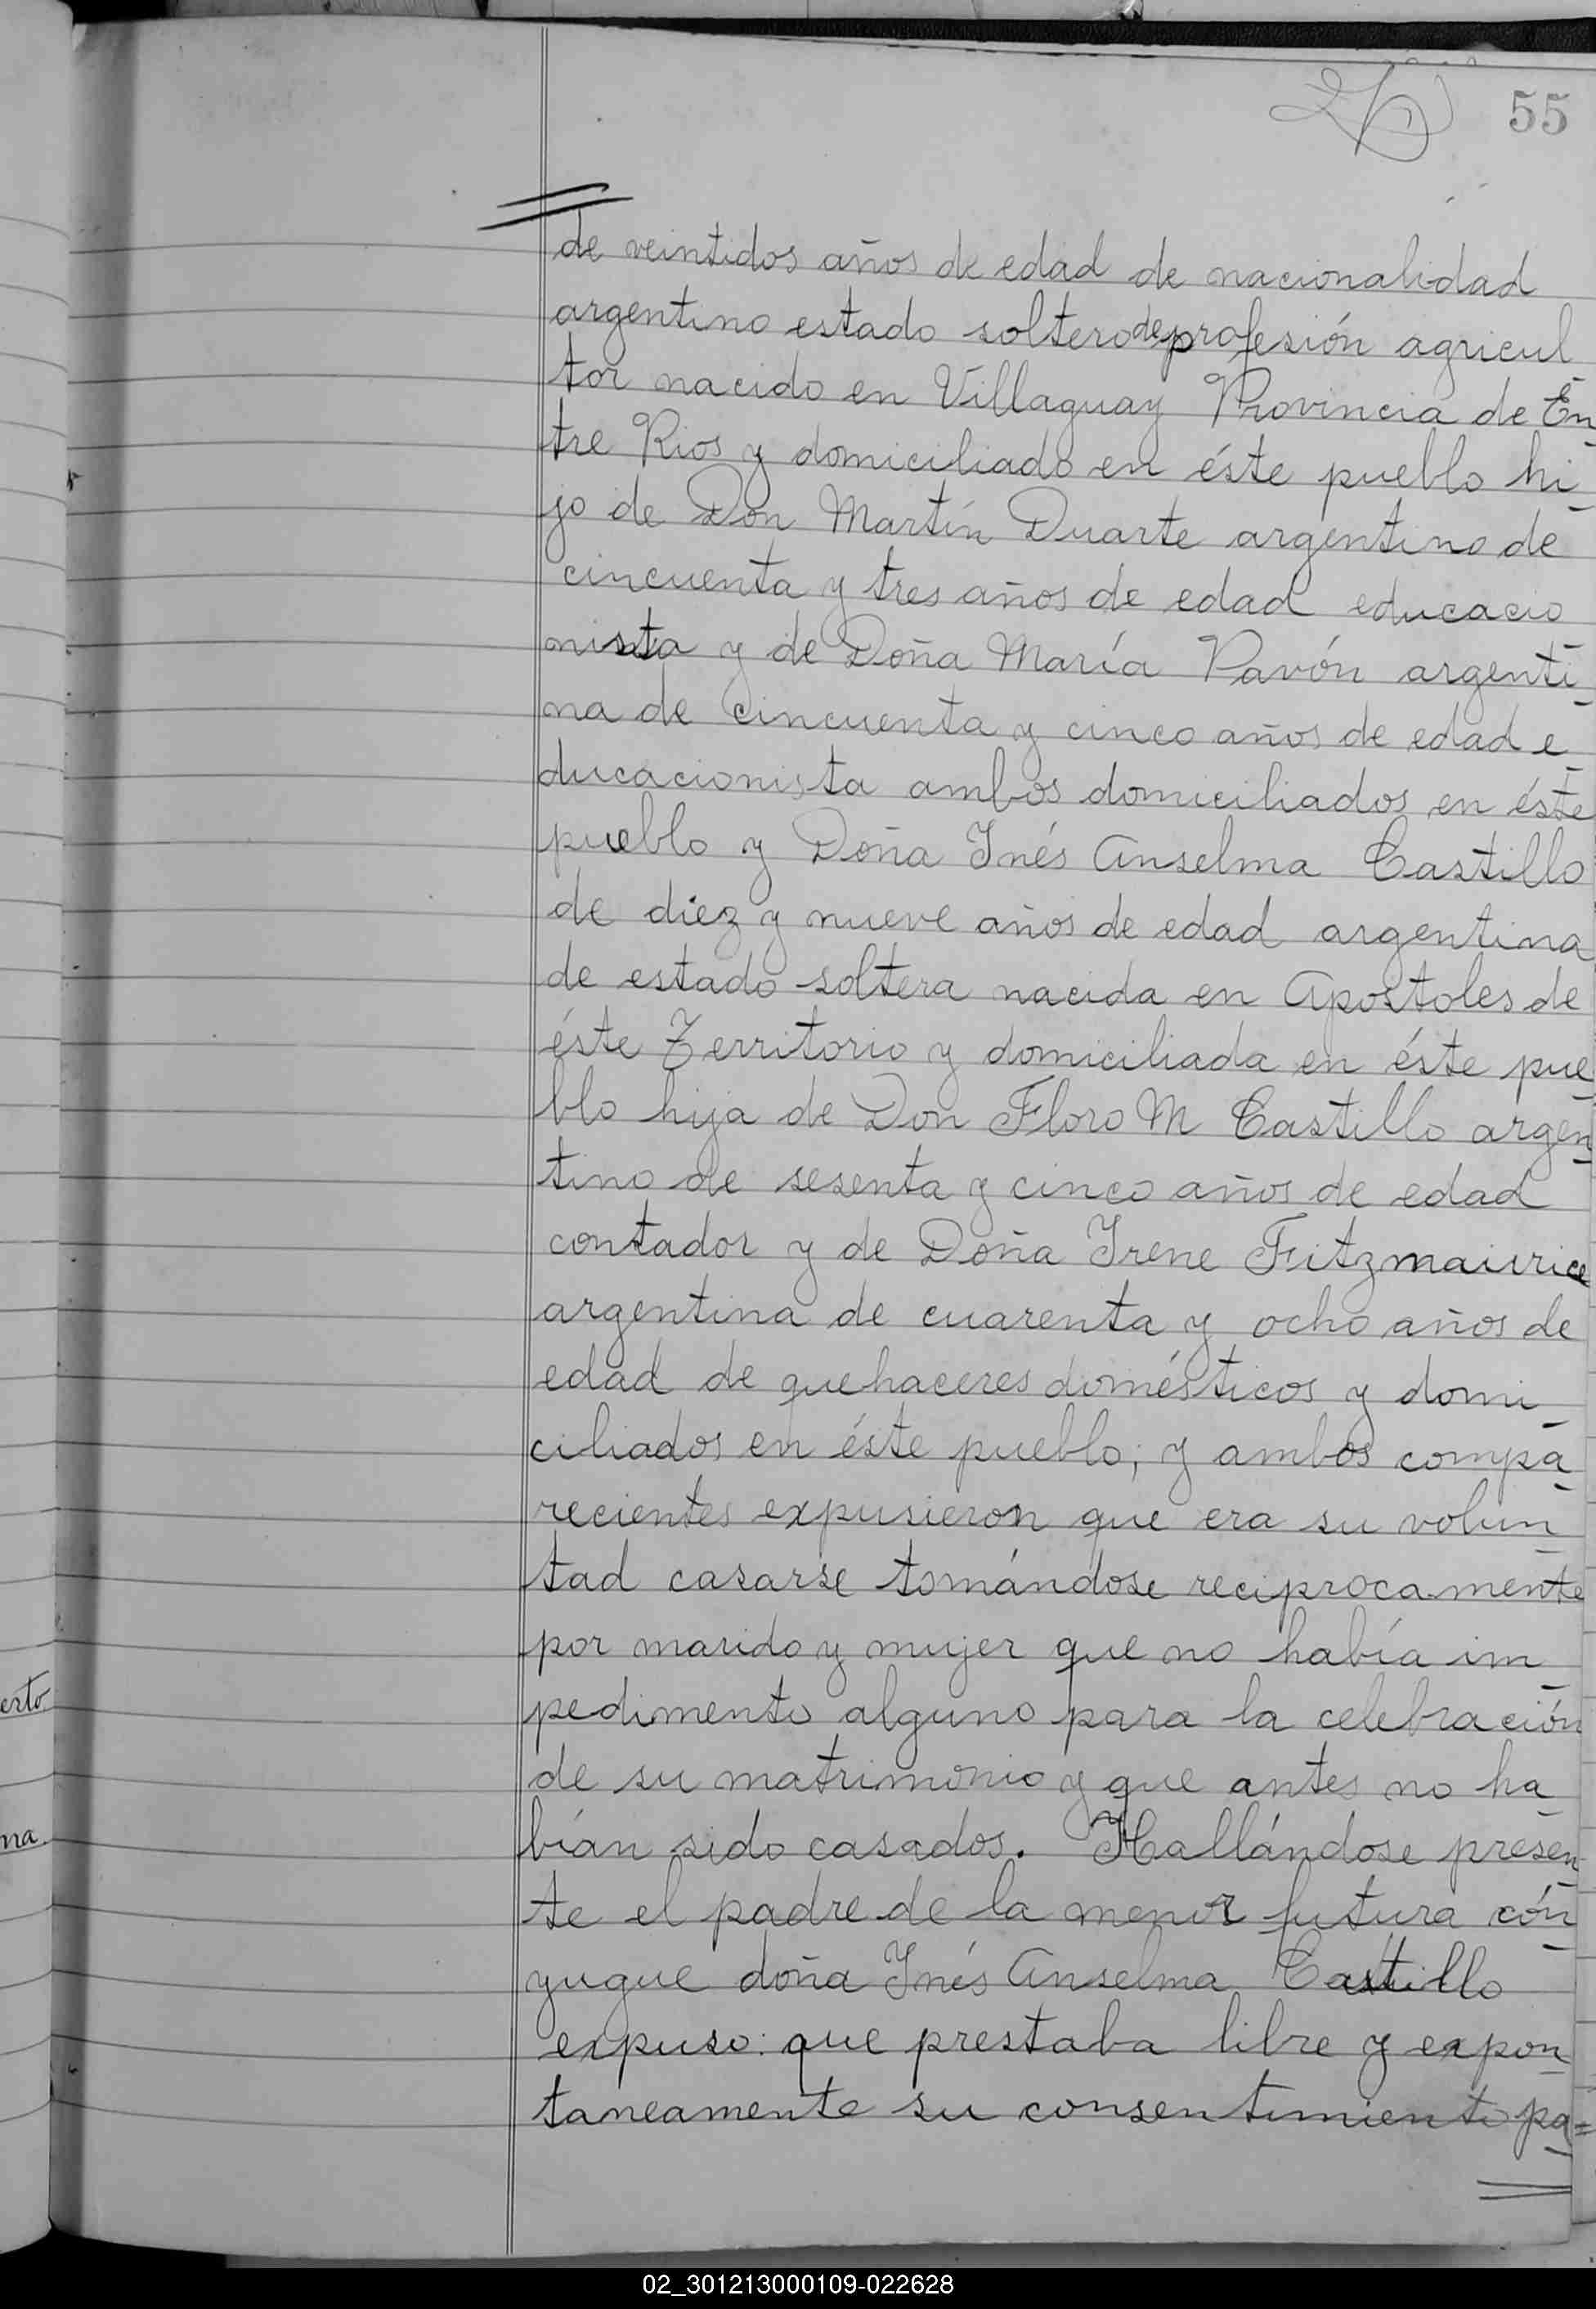 55
de veintidos años de edad de nacionalidad
argentino estado soltero de profesión agricul
tor nacido en Villaguay Provincia de En
tre Rios y domiciliado en éste pueblo hi
jo de Don Martín Duarte argentino de
cincuenta y tres años de edad educacio
nista y de Doña María Pavón argenti
na de cincuenta y cinco años de edad e
ducacionista ambos domiciliados en éste
pueblo y Doña Inés Anselma Castillo
de diez y nueve años de edad argentina
de estado soltera nacida en Apostoles de
éste Territorio y domiciliada en éste pue
blo hija de Don Floro M Castillo argen
tino de sesenta y cinco años de edad
contador y de Doña Irene Fitzmaurice
argentina de cuarenta y ocho años de
edad de quehaceres domésticos y domi
ciliados en éste pueblo; y ambos compa
recientes expusieron que era su volun
tad casarse tomándose reciprocamente
por marido y mujer que no había im
pedimento alguno para la celebración
de su matrimonio y que antes no ha
bían sido casados. Hallándose presen
te el padre de la menor futura cón
yugue doña Inés Anselma Castillo
expuso: que prestaba libre y expon
taneamente su consentimiento pa=
erto
na.
02_301213000109-022628